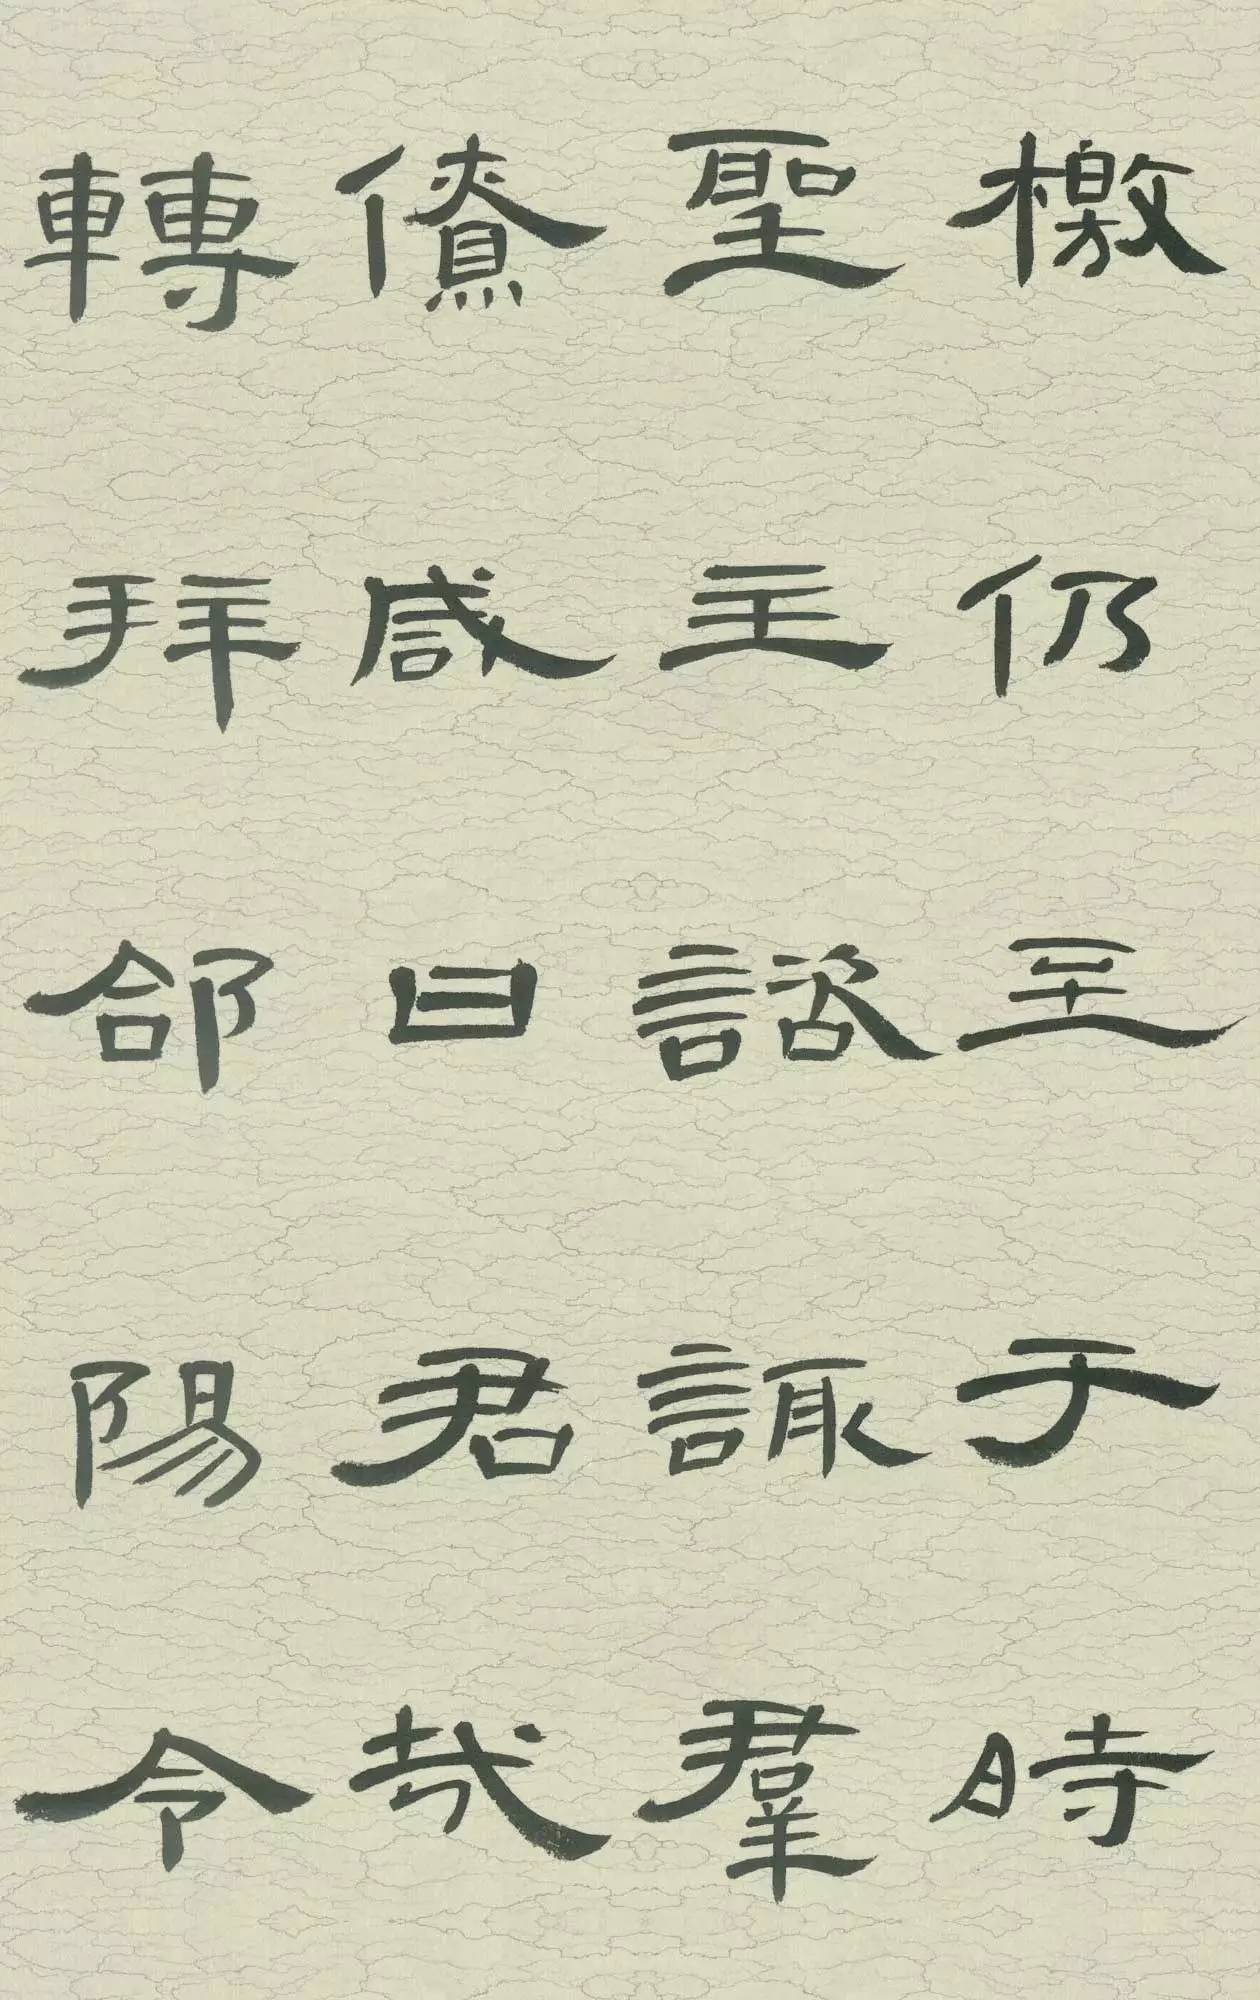 檄仍至于時
聖主諮諏羣
僚咸曰君哉
轉拜郃陽令